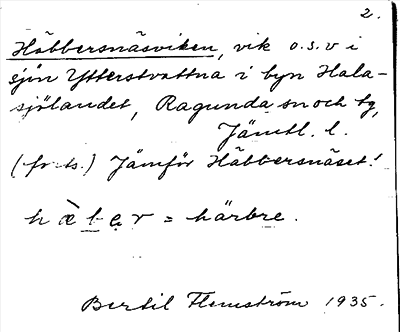 2.
Häbbersnäsviken, vik o.s.v i
sjön Ytterstvattna i byn Hala-
sjölandet, Ragunda sn och tg,
Jämtl. l.
(forts.) Jämför Häbbersnäset!
h æ̀ b e r = härbre.
Bertil Flemström 1935.